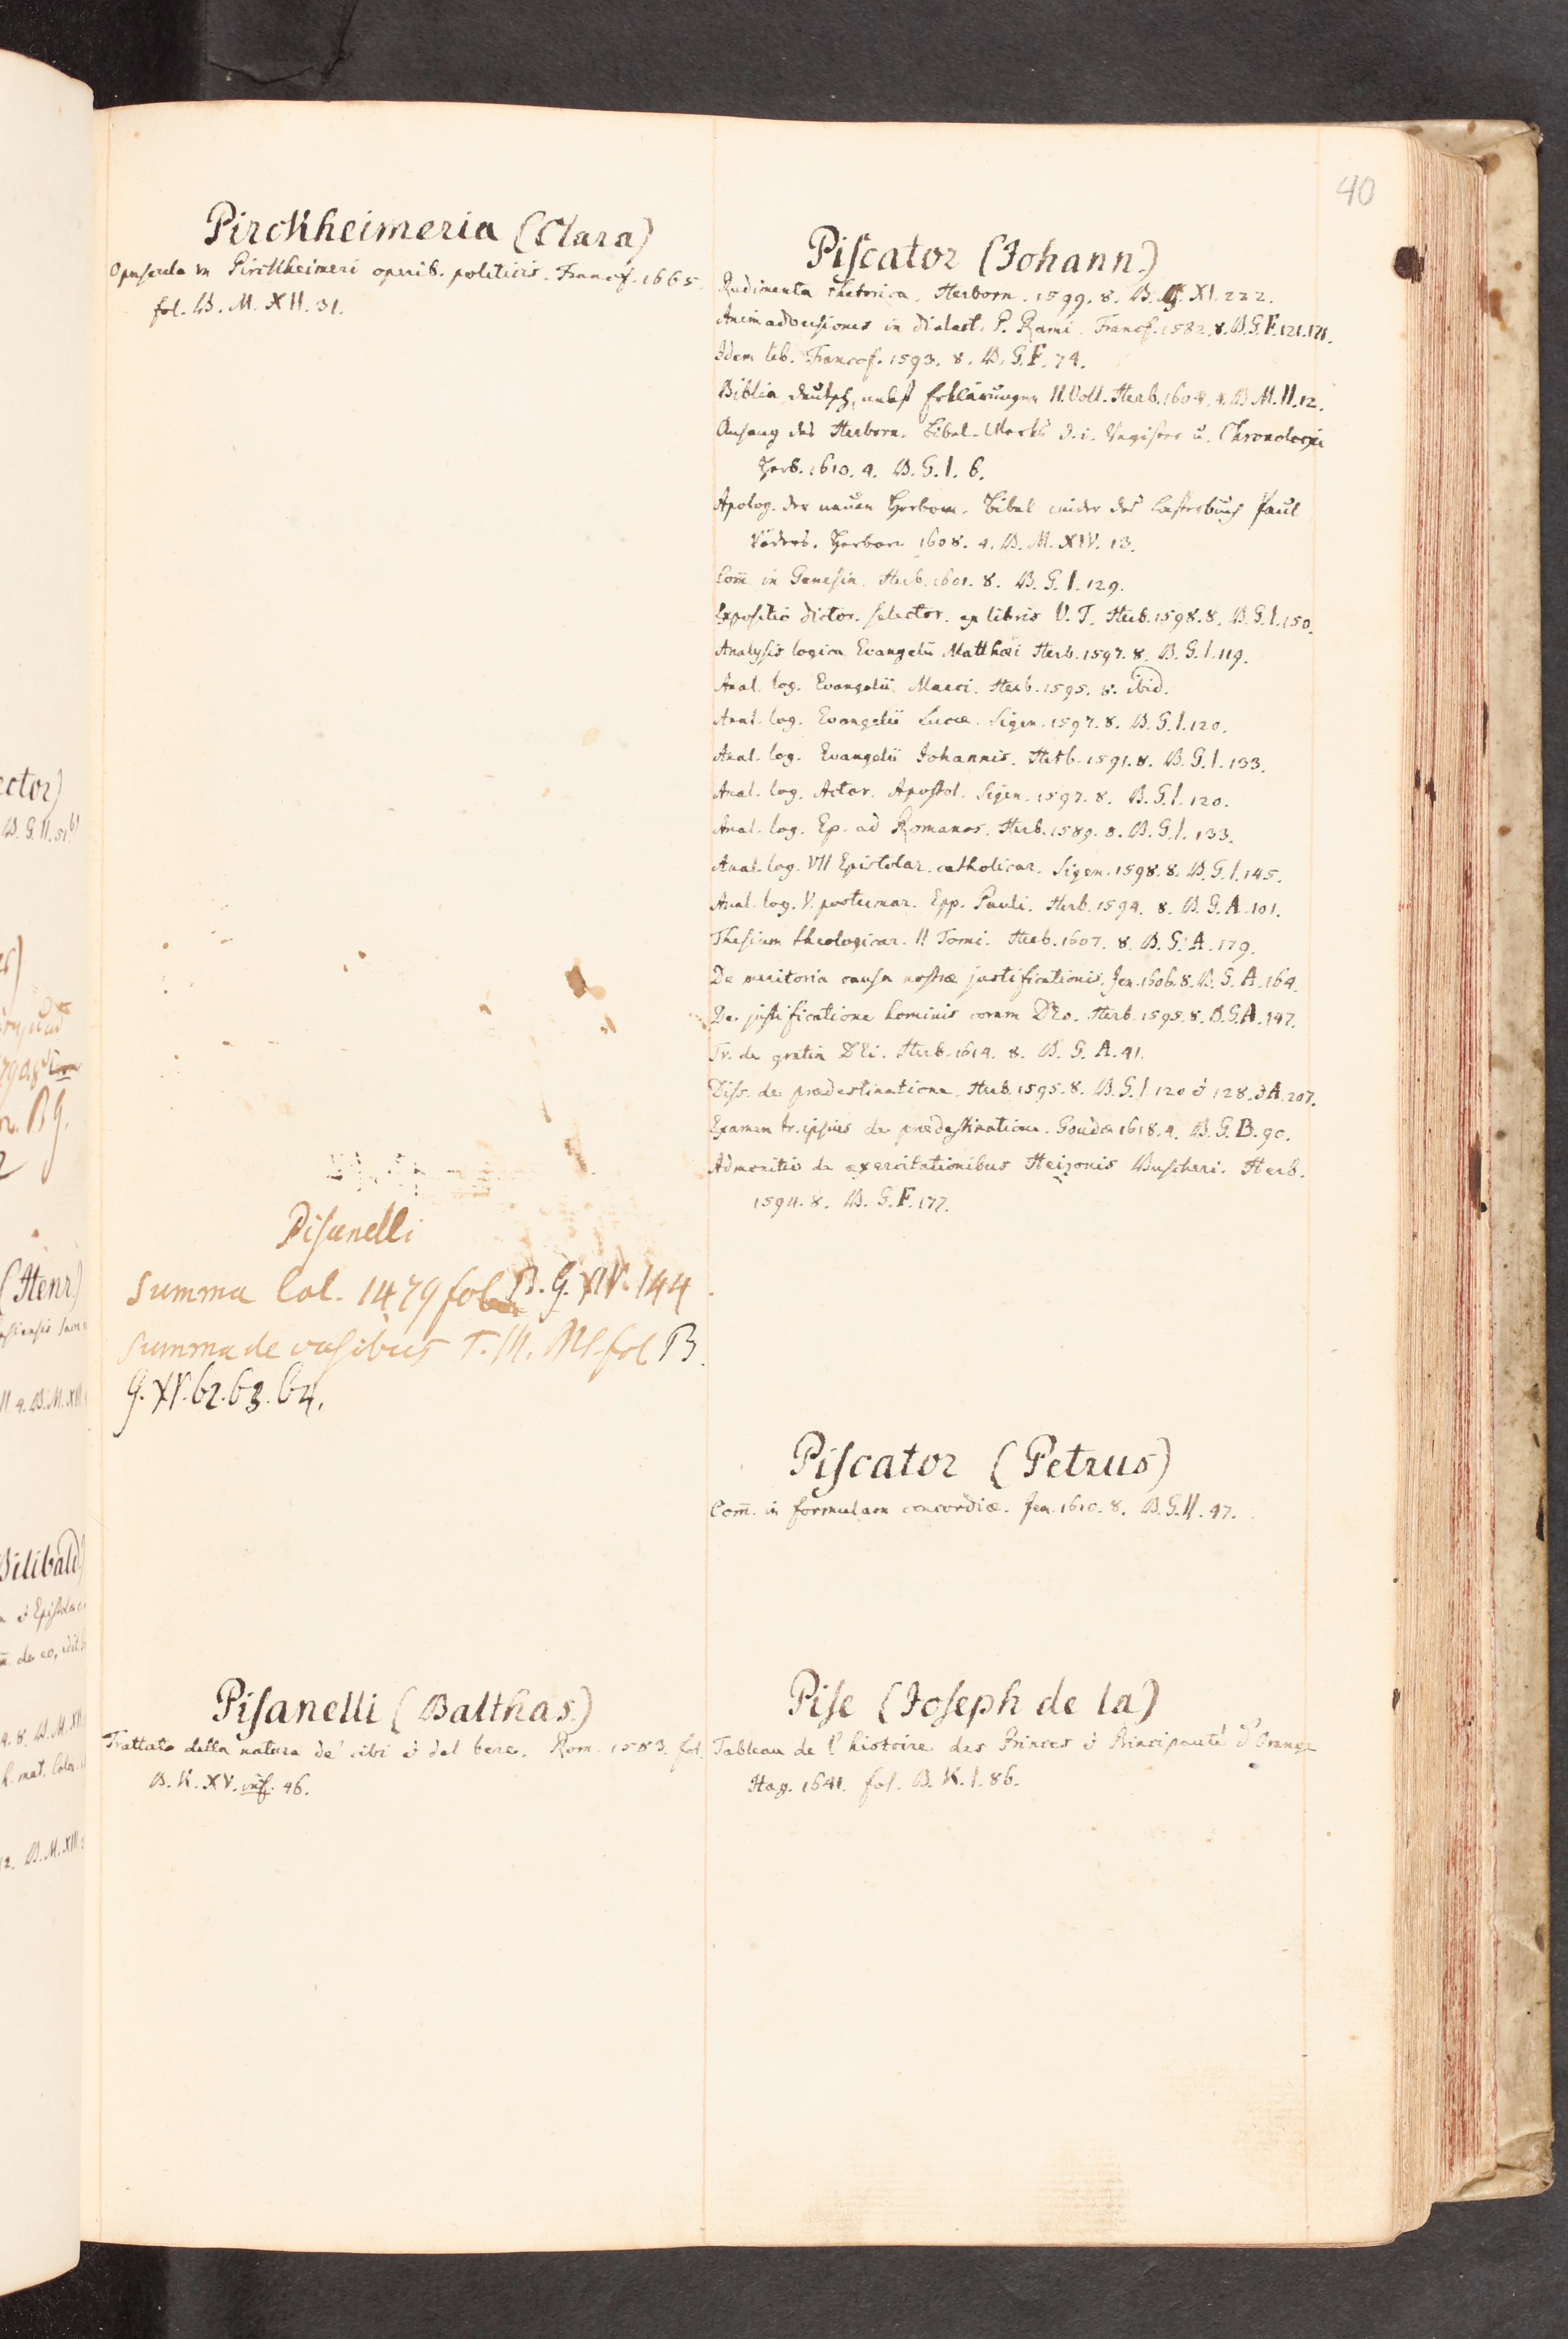 40
Pirckheimeria (Clara)
Opuscula in Pirckheimeri operib. politicis. Francf. 1665.
fol. B. M. XII. 31.
Pisanelli
Summa Col. 1479 fol B. G. XIV. 144
Summa de casibus T. III. Ms. fol B.
G. XV. 62. 63. 64.
Pisanelli (Balthas.)
Trattato della natura de' cibi & del bere. Rom. 1583. fol.
B. K. XV. inf. 46.
Piscator (Johann.)
Rudimenta rhetorica. Herborn. 1599. 8. B. G. XI. 222.
Animadversiones in dialect. P. Rami. Francf. 1582. 8. B. G. F. 121. 171.
Idem lib. Francof. 1593. 8. B. G. F. 74.
Biblia, deutsch, nebst Erklärungen II. Voll. Herb. 1604. 4. B. M. II. 12.
Anhang des Herborn. Bibel-Werks d. i. Register u. Chronologie
Herb. 1610. 4. B. G. I. 6.
Apolog. der neuen Herborn. Bibel wider das Lästerbuch Paul
Röders. Herborn 1608. 4. B. M. XIV. 13.
Com̄. in Genesin. Herb. 1601. 8. B. G. I. 129.
Expositio dictor. selector. ex libris V. T. Herb. 1598. 8. B. G. I. 150.
Analysis logica Evangelii Matthæi Herb. 1597. 8. B. G. I. 119.
Anal. log. Evangelii Marci. Herb. 1595. 8. ibid.
Anal. log. Evangelii Lucæ. Sigen. 1597. 8. B. G. I. 120.
Anal. log. Evangelii Johannis. Herb. 1591. 8. B. G. I. 133.
Anal. log. Actor. Apostol. Sigen. 1597. 8. B. G. I. 120.
Anal. log. Ep. ad Romanos. Herb. 1589. 8. B. G. I. 133.
Anal. log. VII Epistolar. catholicar. Sigen. 1598. 8. B. G. I. 145.
Anal. log. V. postumar. Epp. Pauli. Herb. 1594. 8. B. G. A. 101.
Thesium theologicar. II Tomi. Herb. 1607. 8. B. G. A. 179.
De meritoria causa nostræ justificationis. Jen. 1606. 8. B. G. A. 164.
De justificatione hominis coram DEo. Herb. 1595. 8. B. G. A. 147.
Tr. de gratia DEi. Herb. 1614. 8. B. G. A. 41.
Diss. de prædestinatione. Herb. 1595. 8. B. G. I. 120 & 128. & A. 207.
Examen tr. ipsius de prædestinatione. Goudæ 1618. 4. B. G. B. 90.
Admonitio de exercitationibus Heizonis Buscheri. Herb.
1594. 8. B. G. F. 177.
Piscator (Petrus)
Com̄. in formulam concordiæ. Jen. 1610. 8. B. G. II. 47.
Pise (Joseph de la)
Tableau de l'histoire des Princes & Principauté d'Orange
Hag. 1641. fol. B. K. I. 86.